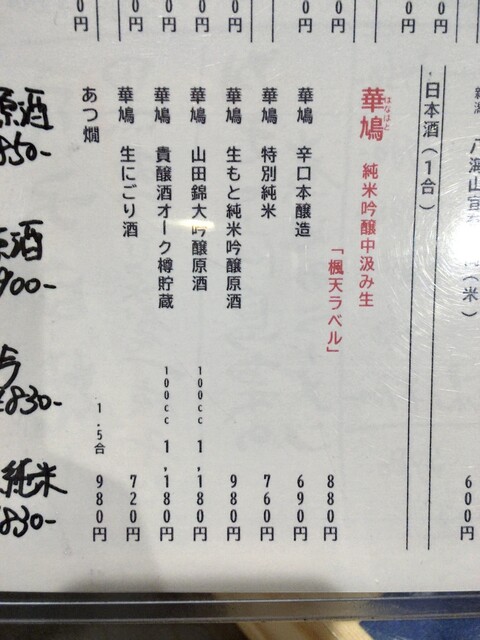 日本酒(1合)
華鳩 純米吟醸中汲み生
はなはと
「楓天ラベル」 880円
華鳩 辛口本醸造 690円
華鳩 特別純米 760円
華鳩 生もと純米吟醸原酒 980円
華鳩 山田錦大吟醸原酒 100cc 1,180円
華鳩 貴醸酒オーク樽貯蔵 100cc 1,180円
華鳩 生にごり酒 720円
あつ燗 1.5合 980円
600円
原酒
850-
酒
900-
830-
純米
830-